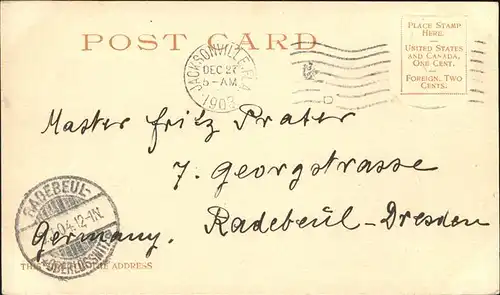 POST CARD
PLACE STAMP
HERE.
UNITED STATES
AND CANADA,
ONE CENT.
FOREIGN, TWO
CENTS.
JACKSONVILLE, FLA.
DEC 27
5-AM
1903
D
Master Fritz Prater
7. Georgstrasse
Radebeul-Dresden
Germany.
RADEBEUL-
04.12-1N.
OBERLÖSSNITZ
TH ADDRESS